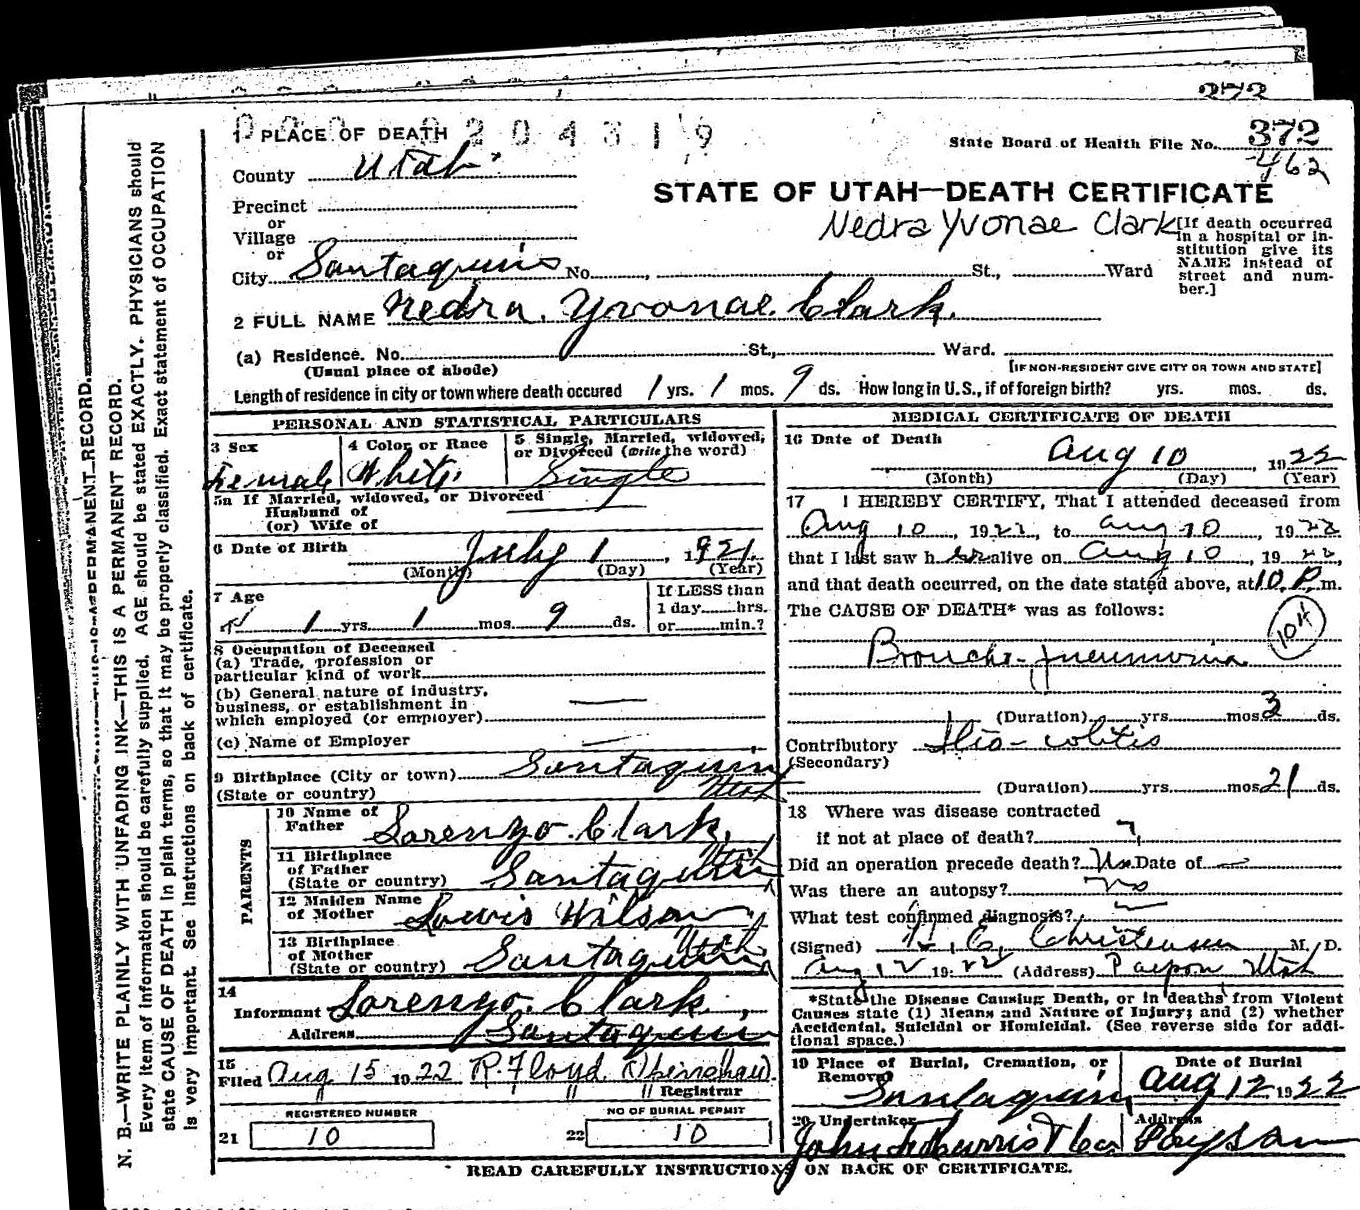 372
1 PLACE OF DEATH
0204319
State Board of Health File No. 372
462
County Utah
STATE OF UTAH—DEATH CERTIFICATE
Precinct
or
Village
or
Nedra Yvonae Clark
[If death occurred in a hospital or institution give its NAME instead of street and number.]
City Santaquin No. , St., Ward
2 FULL NAME Nedra Yvonae Clark.
(a) Residence. No. St., Ward.
(Usual place of abode) [IF NON-RESIDENT GIVE CITY OR TOWN AND STATE]
Length of residence in city or town where death occured 1 yrs. 1 mos. 9 ds. How long in U.S., if of foreign birth? yrs. mos. ds.
PERSONAL AND STATISTICAL PARTICULARS
3 Sex Female
4 Color or Race White
5 Single, Married, widowed, or Divorced (write the word) Single
5a If Married, widowed, or Divorced
Husband of
(or) Wife of
6 Date of Birth July 1, 1921
(Month) (Day) (Year)
7 Age 1 yrs. 1 mos. 9 ds.
If LESS than
1 day hrs.
or min.?
8 Occupation of Deceased
(a) Trade, profession or
particular kind of work
(b) General nature of industry,
business, or establishment in
which employed (or employer)
(c) Name of Employer
9 Birthplace (City or town) Santaquin
(State or country) Utah
PARENTS
10 Name of Father Lorenzo Clark
11 Birthplace of Father (State or country) Santaquin Utah
12 Maiden Name of Mother Lowis Wilson
13 Birthplace of Mother (State or country) Santaquin Utah
14
Informant Lorenzo Clark
Address Santaquin
15
Filed Aug 15 1922 R. Floyd
Registrar
REGISTERED NUMBER
21 10
NO OF BURIAL PERMIT
22 10
MEDICAL CERTIFICATE OF DEATH
16 Date of Death
Aug 10, 1922
(Month) (Day) (Year)
17 I HEREBY CERTIFY, That I attended deceased from
Aug 10, 1922, to Aug 10 1922
that I last saw her alive on Aug 10, 1922,
and that death occurred, on the date stated above, at 10 P.m.
The CAUSE OF DEATH* was as follows:
104
Broncho-pneumonia
(Duration) yrs. mos. 3 ds.
Contributory Ilio-colitis
(Secondary)
(Duration) yrs. mos. 21 ds.
18 Where was disease contracted
if not at place of death? ?
Did an operation precede death? No Date of —
Was there an autopsy? No
What test confirmed diagnosis?
(Signed) E. Christensen M. D.
Aug 12 1922 (Address) Payson Utah
*State the Disease Causing Death, or in deaths from Violent
Causes state (1) Means and Nature of Injury; and (2) whether
Accidental, Suicidal or Homicidal. (See reverse side for additional space.)
19 Place of Burial, Cremation, or Removal Santaquin
Date of Burial Aug 12 1922
20 Undertaker John
Address Payson
READ CAREFULLY INSTRUCTIONS ON BACK OF CERTIFICATE.
N. B.—WRITE PLAINLY WITH UNFADING INK—THIS IS A PERMANENT RECORD.
Every item of information should be carefully supplied. AGE should be stated EXACTLY. PHYSICIANS should
state CAUSE OF DEATH in plain terms, so that it may be properly classified. Exact statement of OCCUPATION
is very important. See instructions on back of certificate.